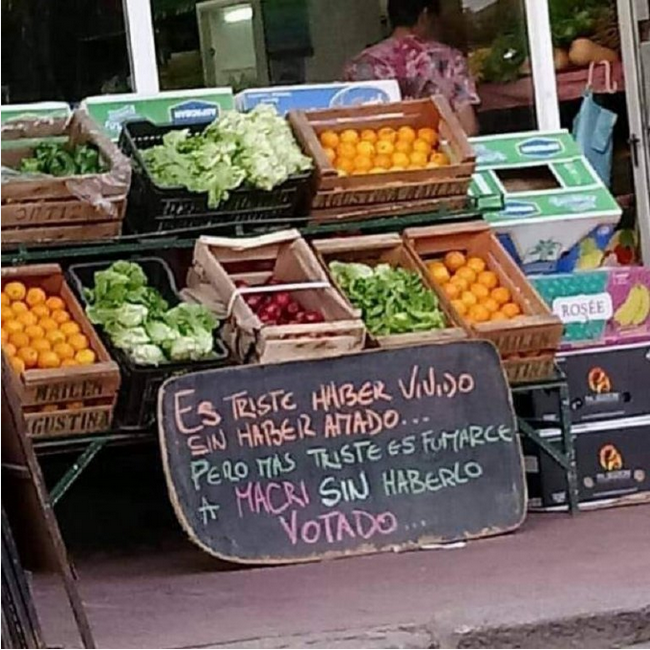 ES TRISTE HABER VIVIDO
SIN HABER AMADO...
PERO MAS TRISTE ES FUMARCE
A MACRI SIN HABERLO
VOTADO...
ROSÉE
MAILEN
AGUSTINA